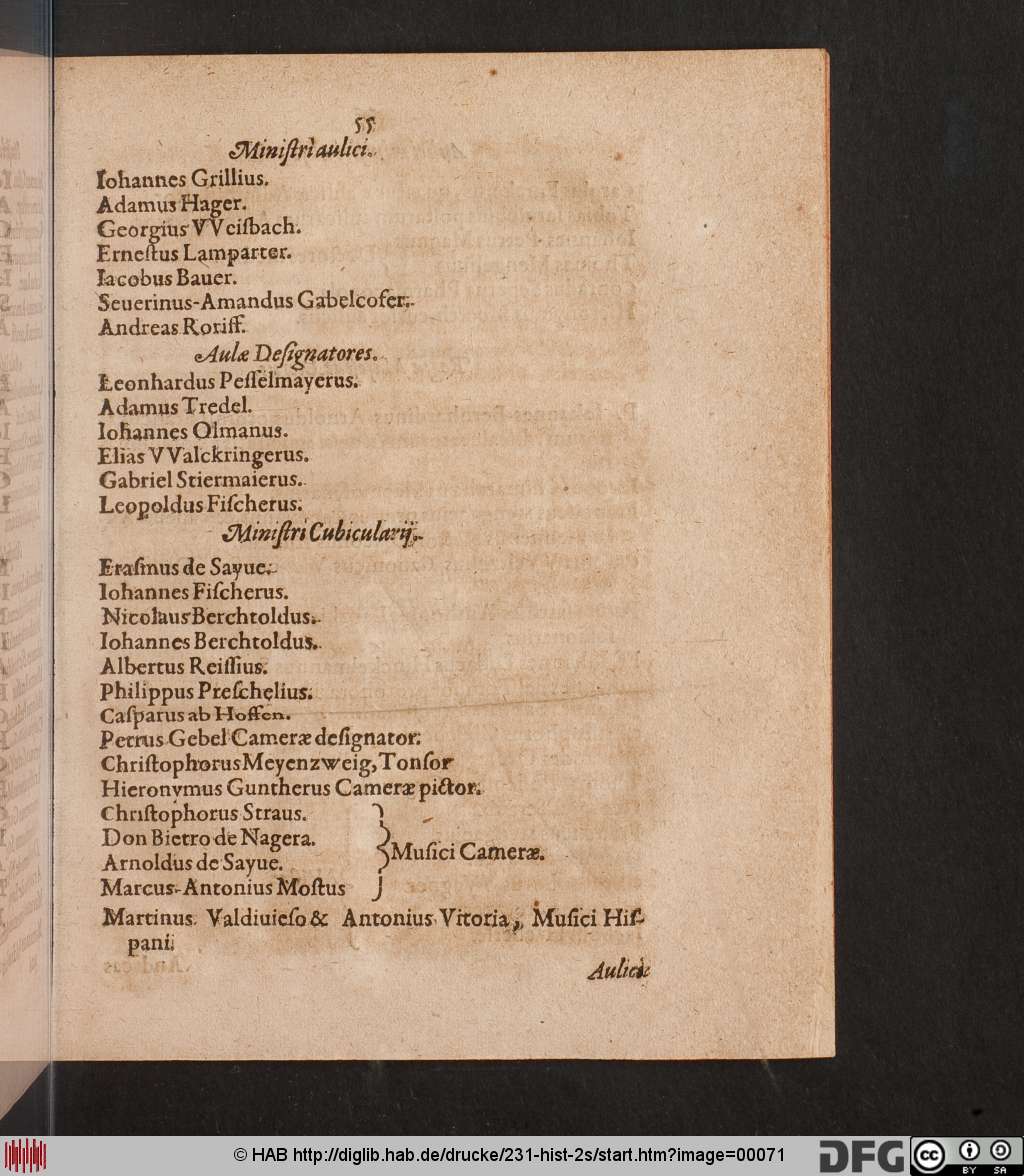 55
Miniſtri aulici.
Iohannes Grillius.
Adamus Hager.
Georgius VVeiſbach.
Erneſtus Lamparter.
Iacobus Bauer.
Seuerinus-Amandus Gabelcofer.
Andreas Roriff.
Aulæ Deſignatores.
Leonhardus Peſſelmayerus.
Adamus Tredel.
Iohannes Olmanus.
Elias VValckringerus.
Gabriel Stiermaierus.
Leopoldus Fiſcherus.
Miniſtri Cubicularij.
Eraſmus de Sayue.
Iohannes Fiſcherus.
Nicolaus Berchtoldus.
Iohannes Berchtoldus.
Albertus Reiſſius.
Philippus Preſchelius.
Caſparus ab Hoffen.
Petrus Gebel Cameræ deſignator.
Chriſtophorus Meyenzweig, Tonſor
Hieronymus Guntherus Cameræ pictor.
Chriſtophorus Straus.
Don Bietro de Nagera.
Arnoldus de Sayue.
Marcus-Antonius Moſtus
Muſici Cameræ.
Martinus Valdiuieſo & Antonius Vitoria, Muſici Hiſ-
pani.
Aulicæ
© HAB http://diglib.hab.de/drucke/231-hist-2s/start.htm?image=00071
DFG
cc
BY SA